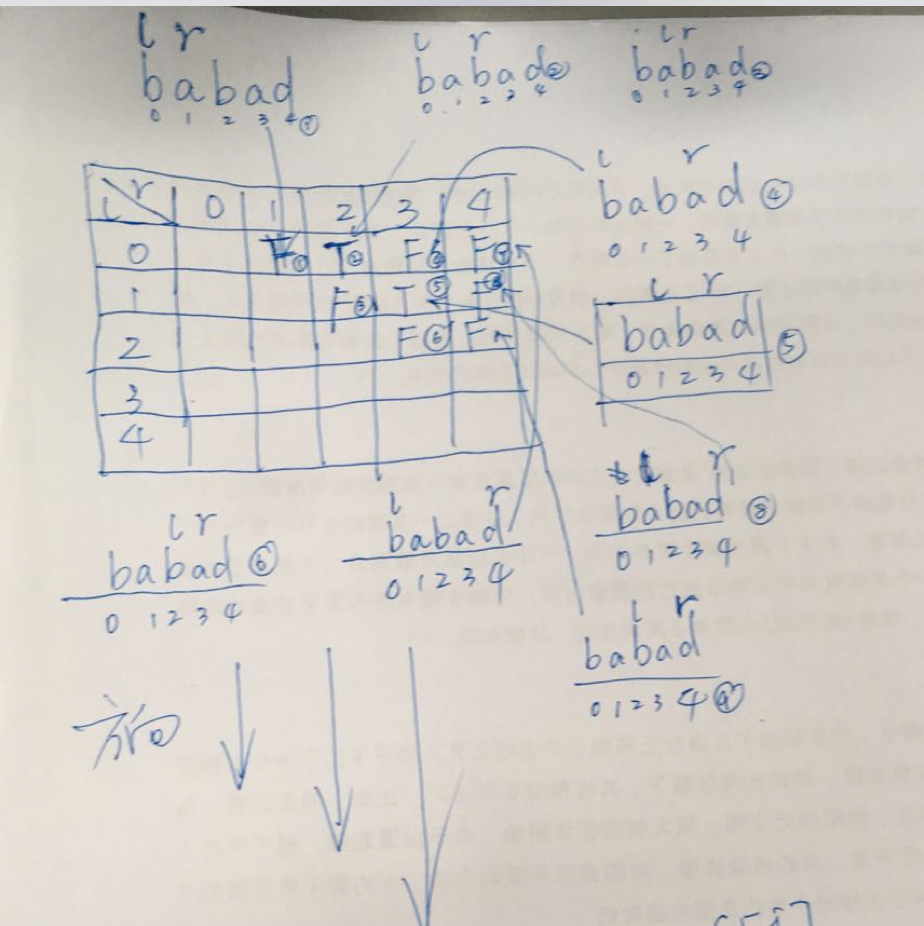 l r
babad
0 1 2 3 4 ①
l r
babad②
0 1 2 3 4
l r
babad③
0 1 2 3 4
l r
babad④
0 1 2 3 4
l r 0 1 2 3 4
0 F① T② F④ F⑦
1 F③ T⑤ F⑧
2 F⑥ F
3
4
l r
babad
0 1 2 3 4
⑤
r
babad ⑧
0 1 2 3 4
l r
babad⑥
0 1 2 3 4
l r
babad
0 1 2 3 4
l r
babad
0 1 2 3 4 ⑨
方向